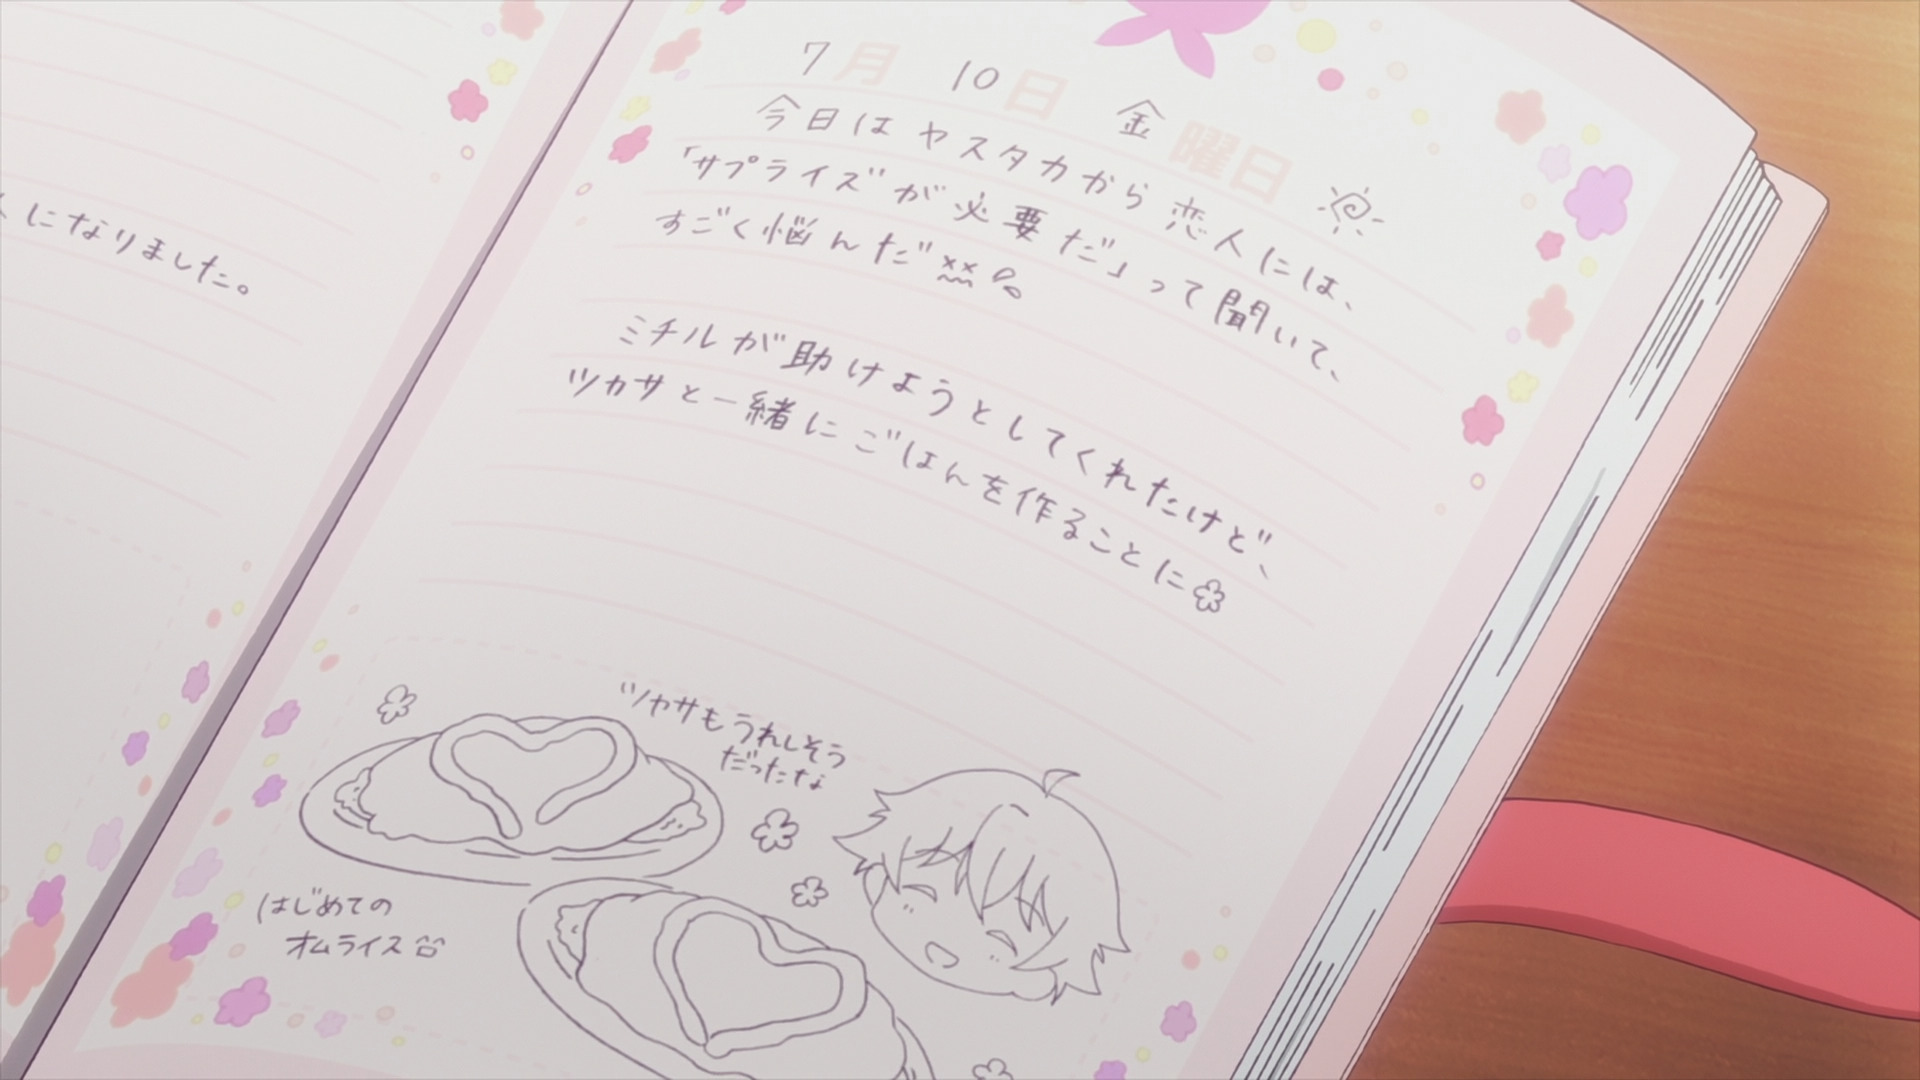 くになりました。
7月 10日 金曜日
今日はヤスタカから恋人には、
「サプライズが必要だ」って聞いて、
すごく悩んだ
ミチルが助けようとしてくれたけど、
ツカサと一緒にごはんを作ることに
ツカサもうれしそう
だったな
はじめての
オムライス